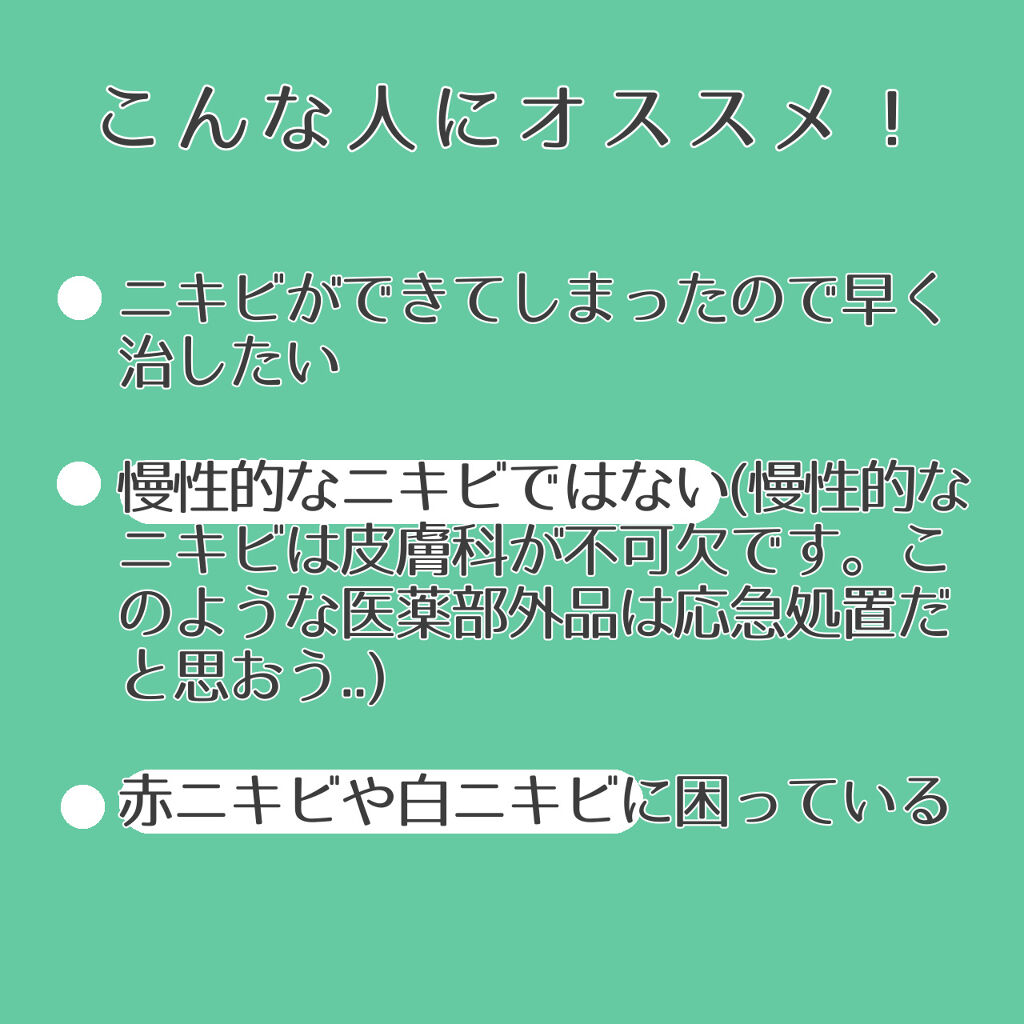 こんな人にオススメ！
ニキビができてしまったので早く
治したい
慢性的なニキビではない(慢性的な
ニキビは皮膚科が不可欠です。こ
のような医薬部外品は応急処置だ
と思おう..)
赤ニキビや白ニキビに困っている